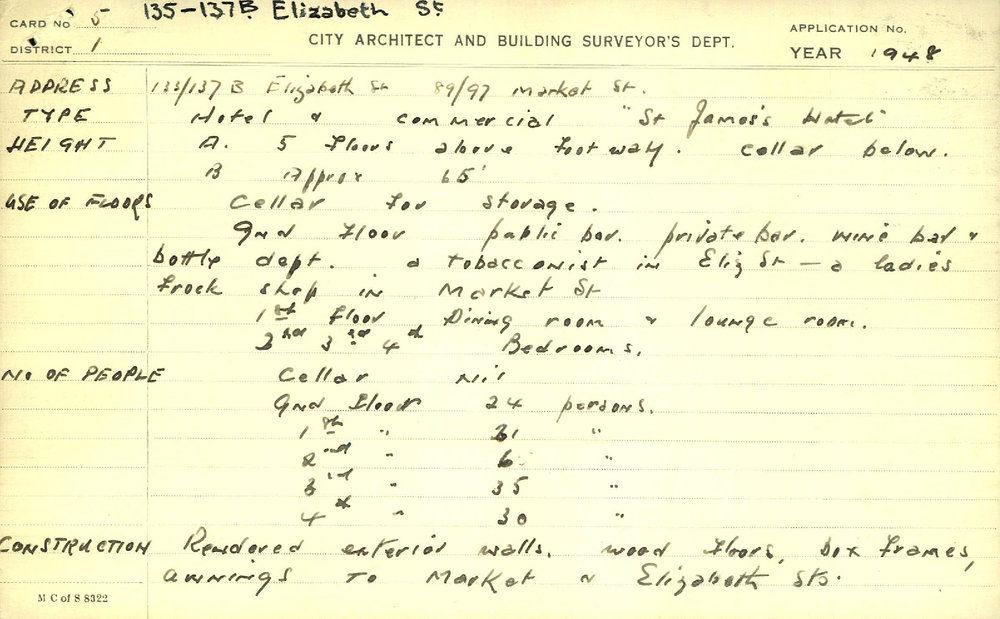 135-137B Elizabeth St
CARD No 5
DISTRICT 1
CITY ARCHITECT AND BUILDING SURVEYOR'S DEPT.
APPLICATION No.
YEAR 1948
ADDRESS 133/137 B Elizabeth St 89/97 Market St.
TYPE Hotel & commercial "St James's Hotel"
HEIGHT A. 5 floors above footway. cellar below.
B Approx 65'
USE OF FLOORS Cellar for storage.
Gnd Floor public bar. private bar. wine bar &
bottle dept. a tobacconist in Eliz St — a ladies
frock shop in Market St
1st Floor Dining room & lounge room.
2nd 3rd 4th Bedrooms.
No OF PEOPLE Cellar nil
Gnd Floor 24 persons.
1st " 31 "
2nd " 6 "
3rd " 35 "
4th " 30 "
CONSTRUCTION Rendered exterior walls, wood floors, box frames,
awnings to Market & Elizabeth Sts.
M C of S 8322